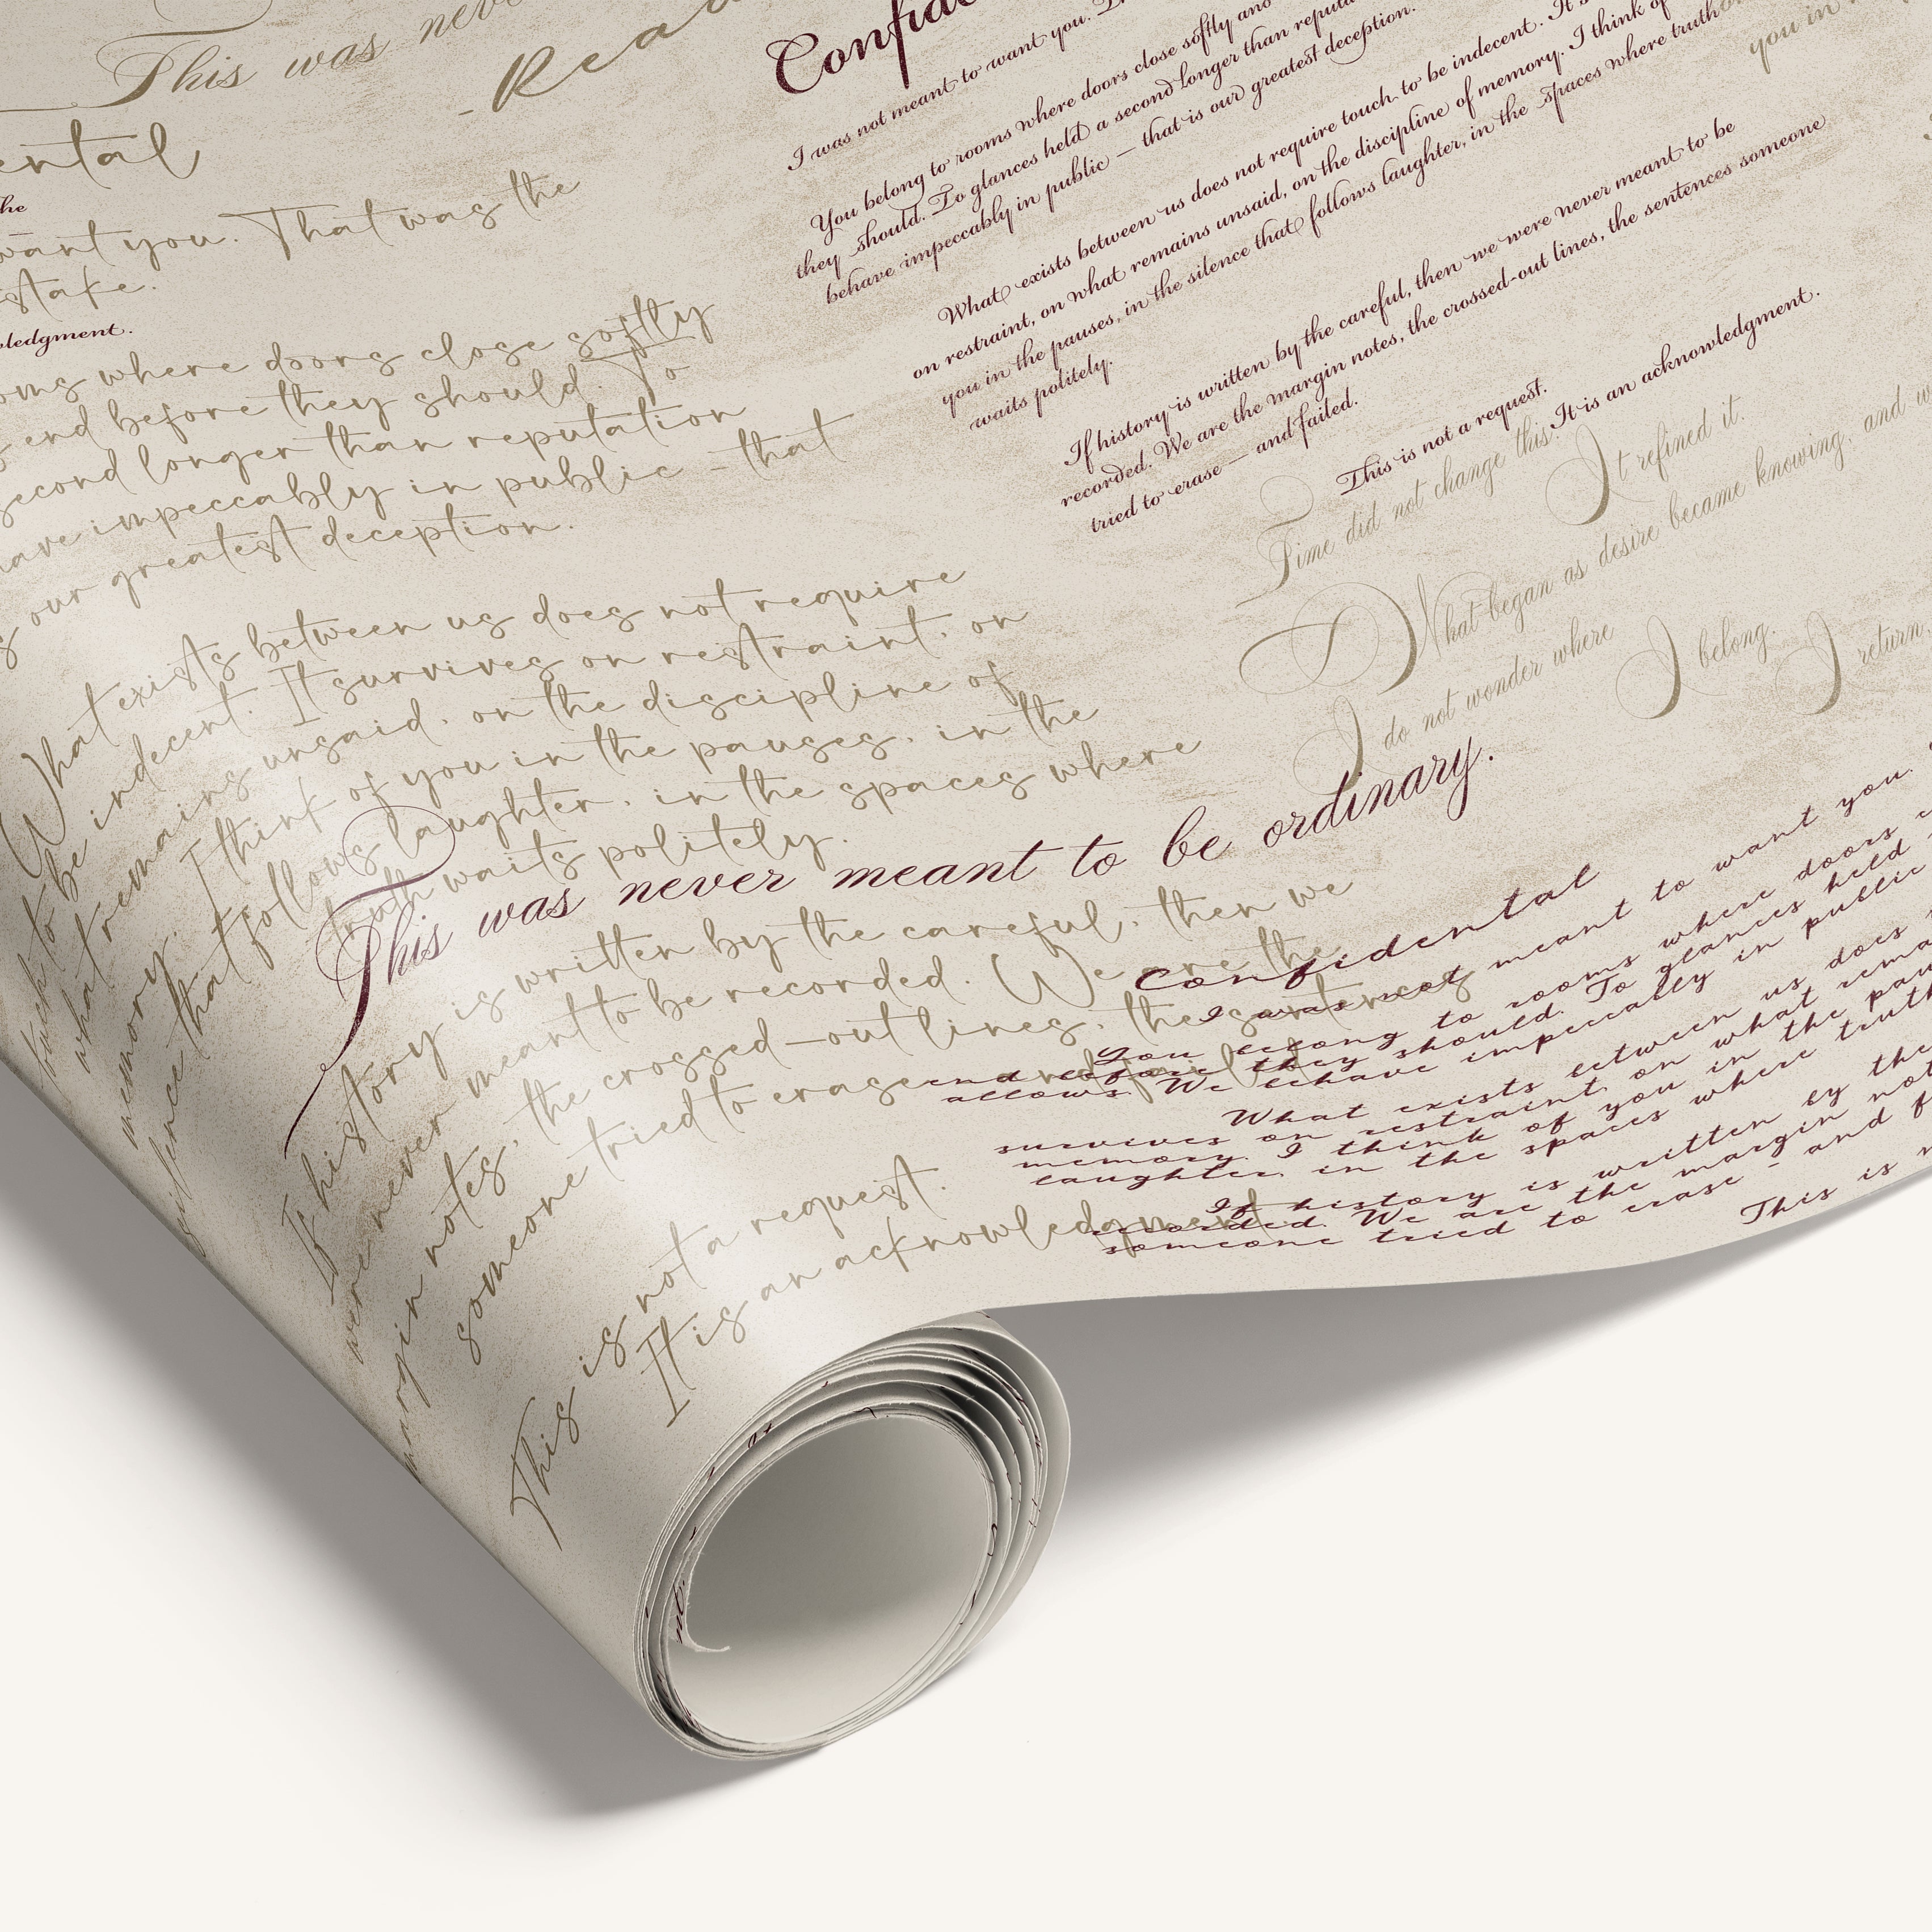 This was neve
- Rea
ental
he
want you. That was the
stake.
ledgment.
oms where doors close softly
end before they should. To
second longer than reputation
ave impeccably in public - that
our greatest deception.
What exists between us does not require
touch to be indecent. It survives on restraint, on
what remains unsaid, on the discipline of
memory. I think of you in the pauses, in the
silence that follows laughter, in the spaces where
truth waits politely.
This was never meant to be ordinary.
If history is written by the careful, then we
were never meant to be recorded. We are the
margin notes, the crossed-out lines, the sentences
someone tried to erase - and failed.
This is not a request.
It is an acknowledgment.
Confide
I was not meant to want you.
You belong to rooms where doors close softly and
they should. To glances held a second longer than reputa
behave impeccably in public — that is our greatest deception.
What exists between us does not require touch to be indecent. It s
on restraint, on what remains unsaid, on the discipline of memory. I think of
you in the pauses, in the silence that follows laughter, in the spaces where truth
waits politely.
If history is written by the careful, then we were never meant to be
recorded. We are the margin notes, the crossed-out lines, the sentences someone
tried to erase — and failed.
This is not a request.
It is an acknowledgment.
you in
Time did not change this. It refined it.
What began as desire became knowing, and w
I do not wonder where I belong. I return.
Confidental
I was not meant to want you.
You belong to rooms where doors
end before they should. To glances held
allows. We behave impeccably in public
What exists between us does
survives on restraint on what rema
memory. I think of you in the pau
laughter in the spaces where truth
If history is written by the
recorded. We are the margin not
someone tried to erase - and f
This is n